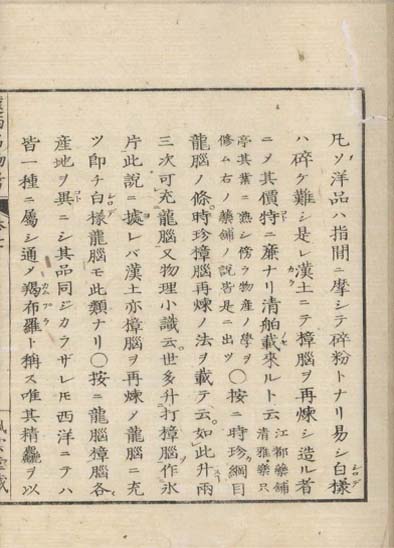 凡ソ洋品ハ指間ニ摩シテ碎粉トナリ易シ白樣
ハ碎ケ難シ是レ漢土ニテ樟腦ヲ再煉シ造ル者
ニメ其價特ニ廉ナリ清舶載來ルト云 江都藥鋪清雅樂只
亭其業ニ熟シ傍ラ物産ノ學ヲ修ム右ノ藥鋪ノ説皆是ニ出ツ 〇按ニ時珍綱目
龍腦ノ條時珍樟腦再煉ノ法ヲ載テ云如此升兩
三次可充龍腦又物理小識云世多升打樟腦作氷
片此説ニ據レバ漢土亦樟腦ヲ再煉メ龍腦ニ充
ツ即チ白樣龍腦モ此類ナリ〇按ニ龍腦樟腦各
産地ヲ異ニシ其品同ジカラザレ𪜈西洋ニテハ
皆一種ニ屬シ通メ羯布羅ト稱ス唯其精麤ヲ以